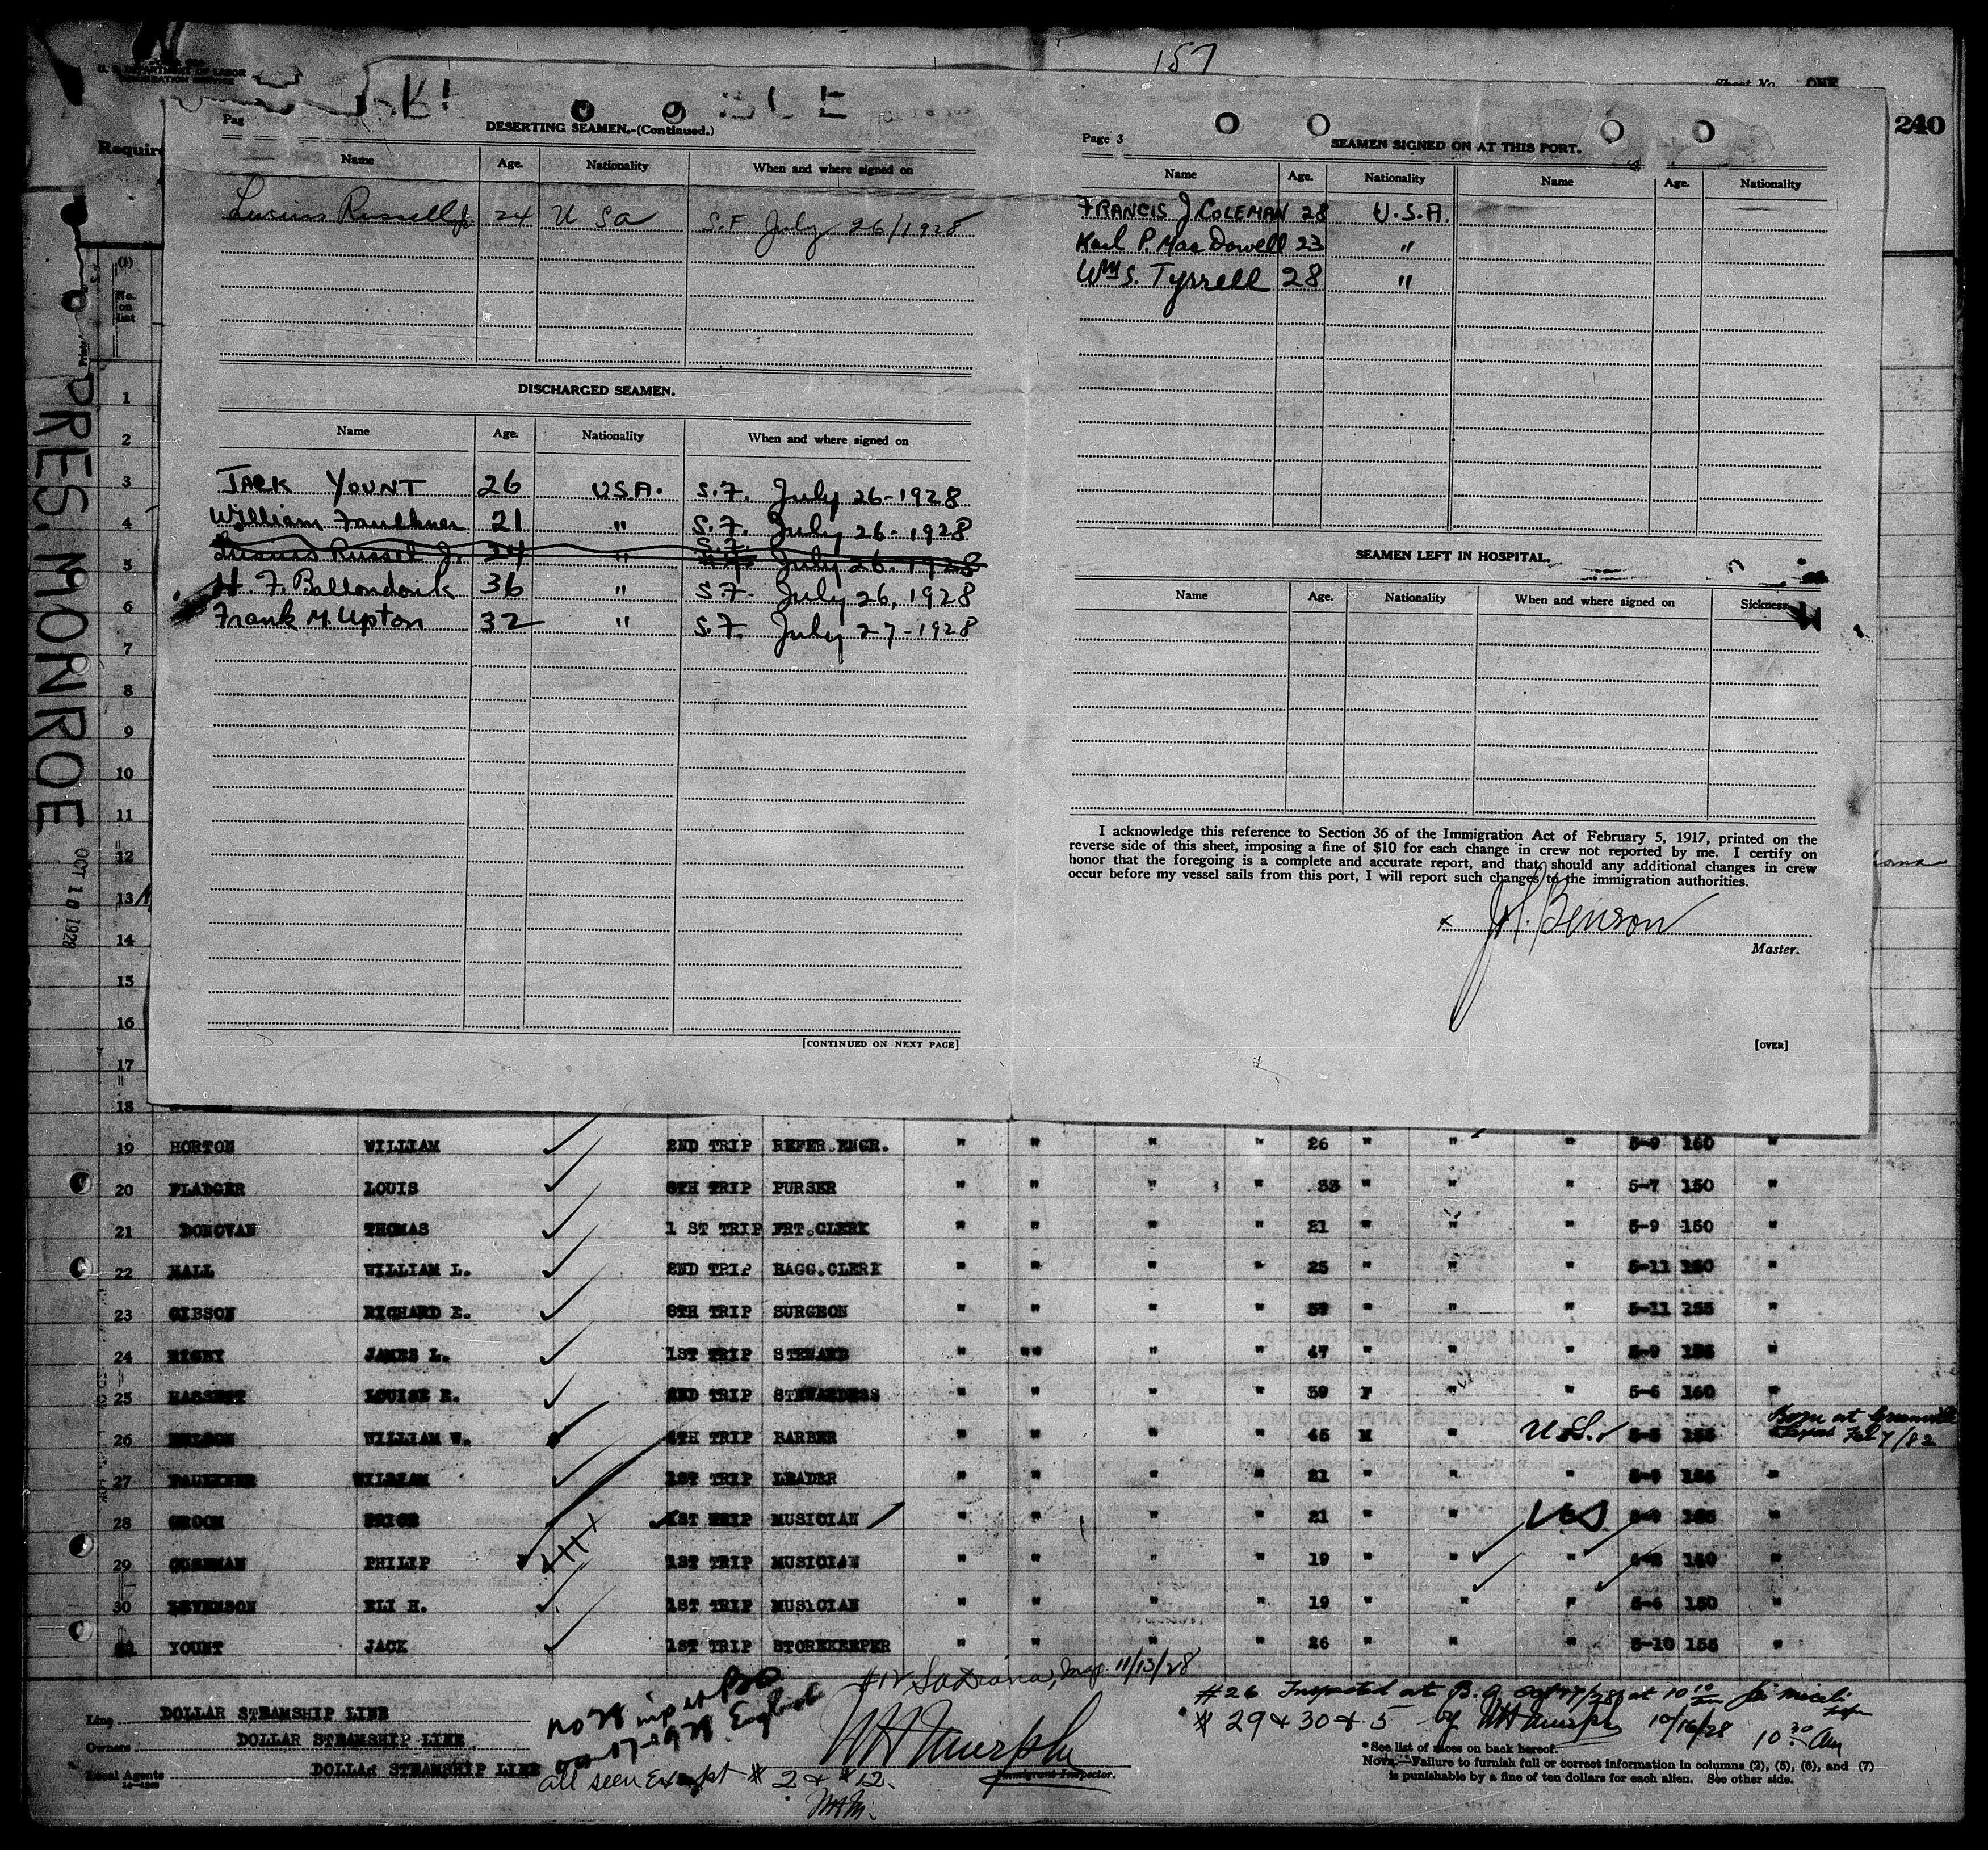 157
U. S. DEPARTMENT OF LABOR
IMMIGRATION SERVICE
Sheet No. ONE
240
Require
PRES. MONROE
OCT 10 1928
(3)
No. on list
Pag
DESERTING SEAMEN.-(Continued.)
Name Age. Nationality When and where signed on
Lucius Russell Jr 24 U Sa S.F. July 26/1928
DISCHARGED SEAMEN.
Name Age. Nationality When and where signed on
JACK YOUNT 26 USA. S.F. July 26-1928
William Faulkner 21 " S.F. July 26-1928
Lucius Russel Jr. 24 " S.F. July 26-1928
H. F. 36 " S.F. July 26, 1928
Frank M. Upton 32 " S.F. July 27-1928
[CONTINUED ON NEXT PAGE]
Page 3
SEAMEN SIGNED ON AT THIS PORT.
Name Age. Nationality Name Age. Nationality
FRANCIS J COLEMAN 28 U.S.A.
Karl P. MacDowell 23 "
Wm S. Tyrrell 28 "
SEAMEN LEFT IN HOSPITAL.
Name Age. Nationality When and where signed on Sickness
I acknowledge this reference to Section 36 of the Immigration Act of February 5, 1917, printed on the
reverse side of this sheet, imposing a fine of $10 for each change in crew not reported by me. I certify on
honor that the foregoing is a complete and accurate report, and that should any additional changes in crew
occur before my vessel sails from this port, I will report such changes to the immigration authorities.
x Benson
Master.
[OVER]
1
2
3
4
5
6
7
8
9
10
11
12
13
14
15
16
17
18
19 HORTON WILLIAM 2ND TRIP REFER.ENGR. " " " " 26 " " " 5-9 160 "
20 FLADGER LOUIS 8TH TRIP PURSER " " " " 33 " " " 5-7 150 "
21 DONOVAN THOMAS 1 ST TRIP FRT.CLERK " " " " 21 " " " 5-9 150 "
22 HALL WILLIAM L. 2ND TRIP BAGG.CLERK " " " " 25 " " " 5-11 160 "
23 GIBSON RICHARD E. 8TH TRIP SURGEON " " " " 57 " " " 5-11 255 "
24 RIGBY JAMES L. 1ST TRIP STEWARD " " " " 47 " " " "
25 HASSETT LOUISE R. 2ND TRIP STEWARDESS " " " " 39 F " " 5-6 160 "
26 WILLIAM W. 4TH TRIP BARBER " " " " 45 M " U.S. 5-5 155 Born at Greenville Texas Feb 7/82
27 FAULKNER WILLIAM 1ST TRIP LEADER " " " " 21 " " " "
28 GROOM 1ST TRIP MUSICIAN " " " " 21 " " US "
29 PHILIP 1ST TRIP MUSICIAN " " " " 19 " " " "
30 LEVENSON ELI H. 1ST TRIP MUSICIAN " " " " 19 " " " 5-6 150 "
YOUNT JACK 1ST TRIP STOREKEEPER " " " " 26 " " " 5-10 155 "
Line DOLLAR STEAMSHIP LINE
Owners DOLLAR STEAMSHIP LINE
Local Agents DOLLAR STEAMSHIP LINE
no 28
England
all seen Exempt # 2 & # 12.
#12 Insp. 11/13/28
WH Murphy
Immigrant Inspector.
#26 Inspected at B.O. at 10
# 29 & 30 & 5 by WH Murphy 10/16/28 10 30 am
*See list of races on back hereof.
NOTE.—Failure to furnish full or correct information in columns (2), (5), (6), and (7)
is punishable by a fine of ten dollars for each alien. See other side.